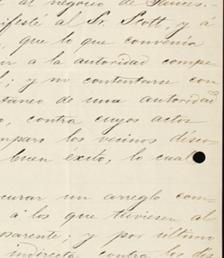 al negocio de
ifesté al Sr. Scott, y á
, que lo que convenía
n á la autoridad compe
l; y no contentarse con
táneo de una autoridad
o, contra cuyos actos
mparo los vecinos
buen éxito, lo cual
curar un arreglo com
á los que tuviesen al
osarente; y por último
indirecta contra los